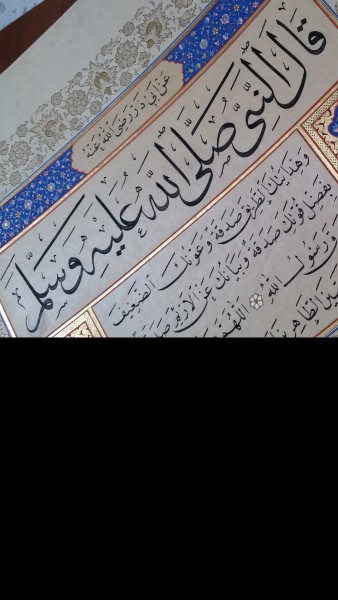 عَنْ أَبِي ذَرٍّ رَضِيَ اللهُ عَنْهُ
قَالَ النَّبِيُّ صَلَّى اللهُ عَلَيْهِ وَسَلَّمَ
وَهِدَايَتُكَ الطَّرِيقَ صَدَقَةٌ وَعَوْنُكَ الضَّعِيفَ
بِفَضْلِ قُوَّتِكَ صَدَقَةٌ وَبَيَانُكَ عَنِ الْأَرْتَمِ صَدَقَةٌ
وَرَسُولُ اللهِ اللَّهُمَّ
الطَّاهِرِينَ